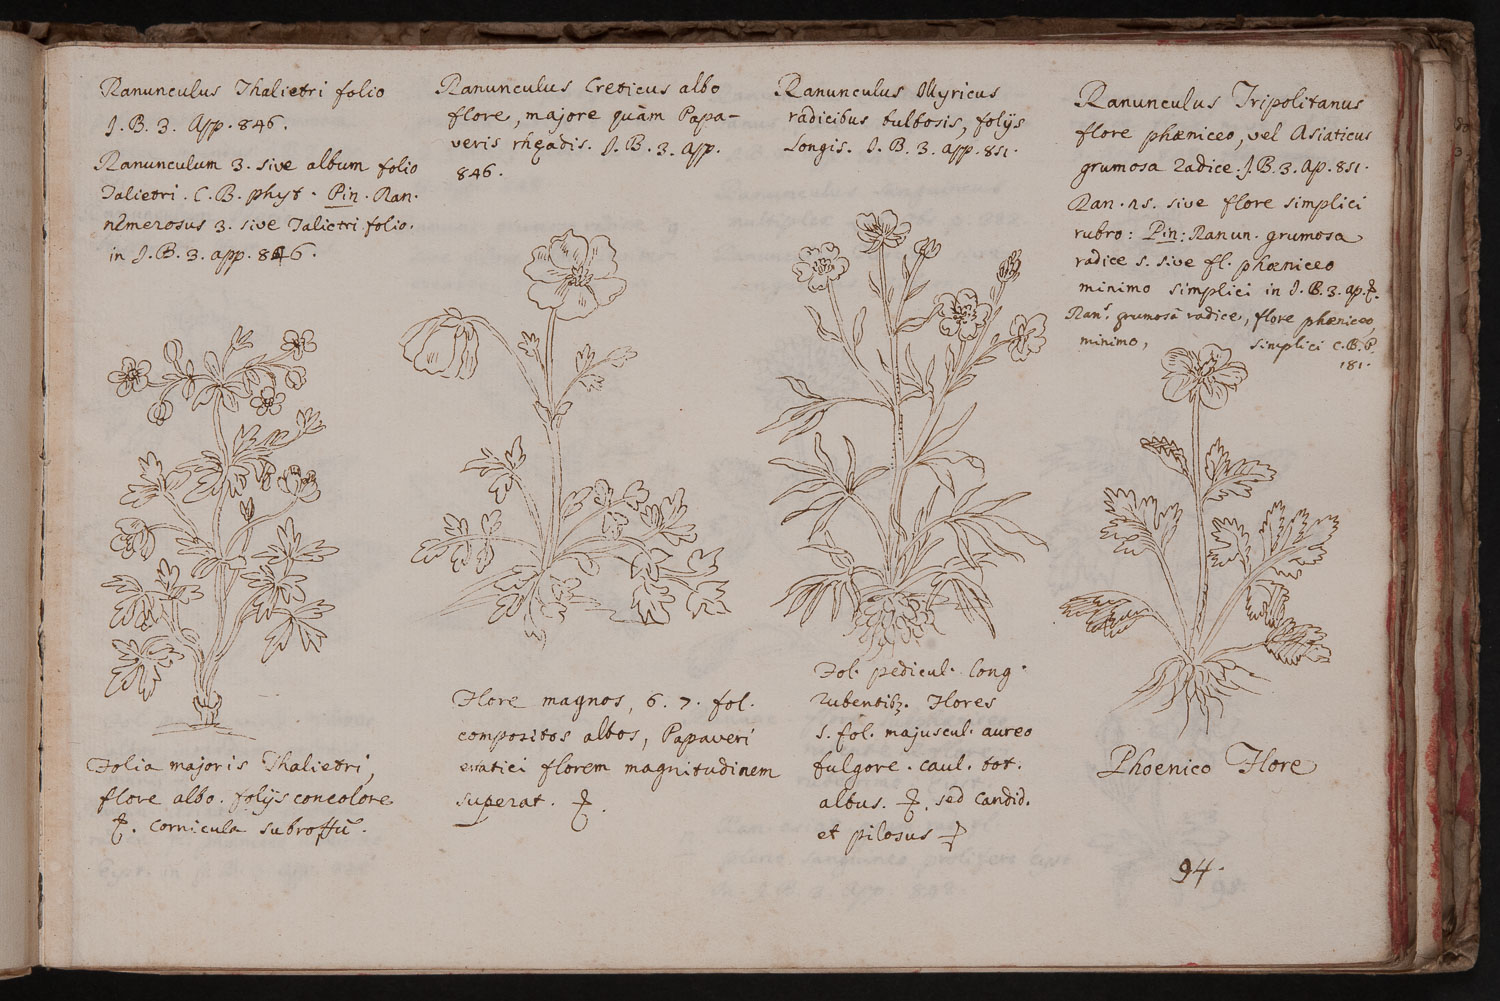 Ranunculus Thalietri folio
J. B. 3. App. 846.
Ranunculum 3. sive album folio
Talietri. C. B. phyt. Pin. Ran.
nemerosus 3. sive Talietri folio.
in J. B. 3. app. 846.
Ranunculus Creticus albo
flore, majore quàm Papa-
veris rhęadis. J. B. 3. App.
846.
Ranunculus Illyricus
radicibus bulbosis, folijs
Longis. J. B. 3. app. 851.
Ranunculus Tripolitanus
flore phæniceo, vel Asiaticus
grumosa radice. J. B. 3. Ap. 851.
Ran. as. sive flore simplici
rubro: Pin: Ranun. grumosa
radice s. sive fl. phæniceo
minimo simplici in J. B. 3. ap.
Ran. grumosâ radice, flore phæniceo,
minimo, simplici C. B. P.
181.
Folia majoris Thalietri,
flore albo. folijs concolore
Cornicula subroffū.
Flore magnos, 6. 7. fol.
compositos albos, Papaveri
erratici florem magnitudinem
superat.
Fol. pedicul. long.
rubentibȝ. Flores
5. fol. majuscul. aureo
fulgore. caul. tot.
albus. sed candid.
et pilosus
Phoenico Flore
94.